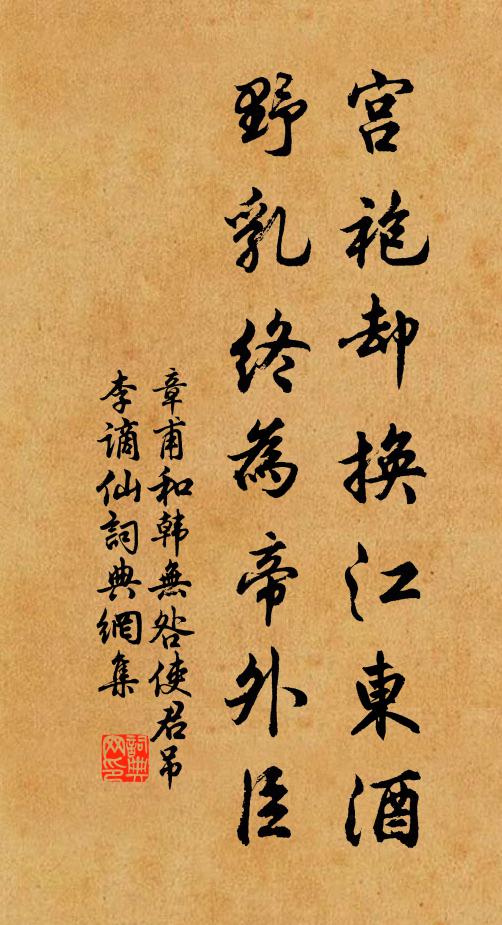 宫袍却换江東酒
野乳终為帝外臣
章甫和韩無咎使君吊
李谪仙詞典網集
詞典
网印